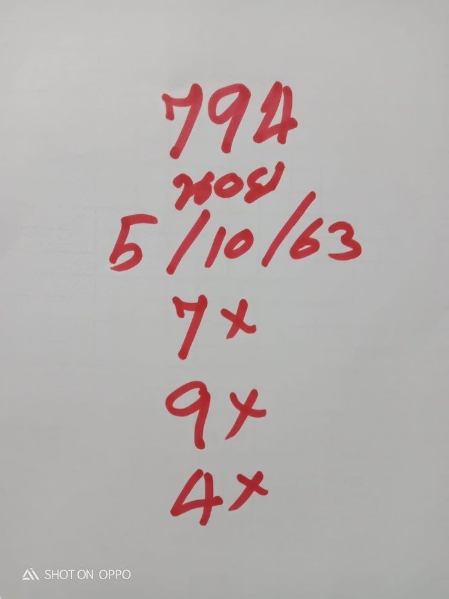 794
ฮอย
5/10/63
7x
9x
4x
SHOT ON OPPO